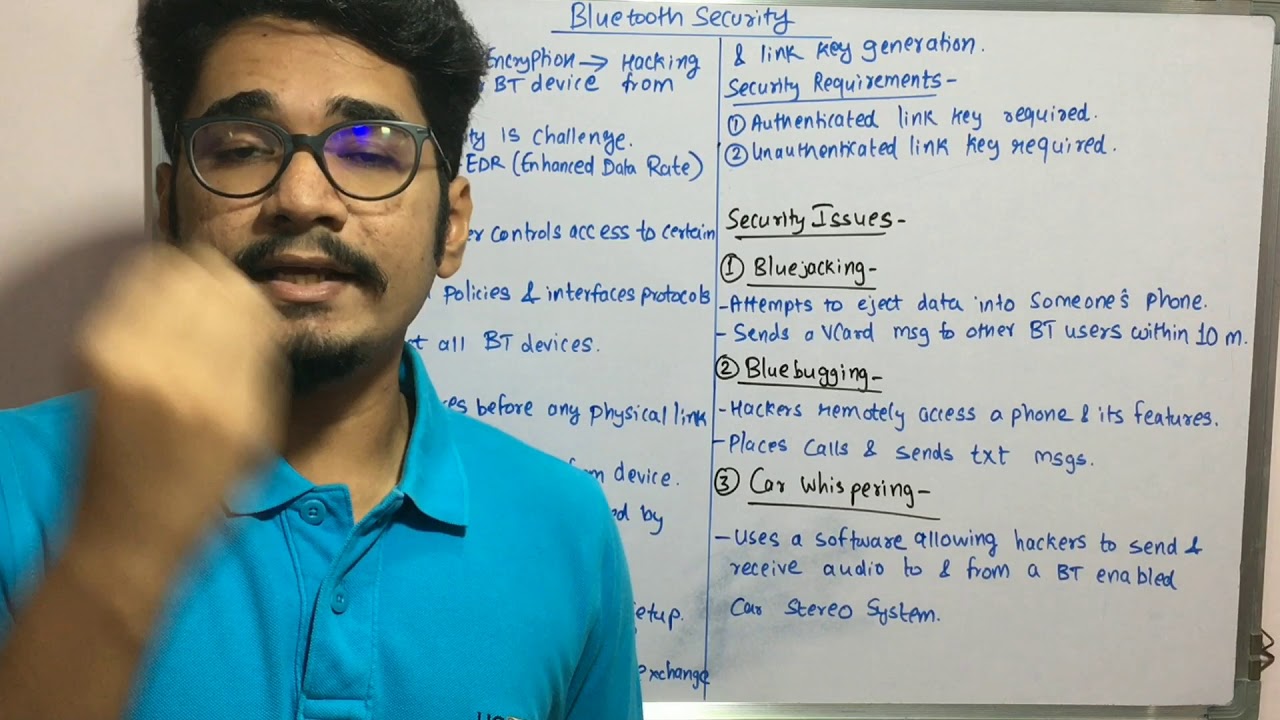 Bluetooth Security
Encryption → Hacking
BT device from
is challenge.
EDR (Enhanced Data Rate)
controls access to certain
policies & interfaces protocols
all BT devices.
before any physical link
device.
by
exchange
& link key generation.
Security Requirements-
① Authenticated link key required.
② Unauthenticated link key required.
Security Issues-
① Bluejacking-
-Attempts to eject data into someone's phone.
- Sends a VCard msg to other BT users within 10 m.
② Bluebugging-
-Hackers remotely access a phone & its features.
-Places calls & sends txt msgs.
③ Car whispering-
- Uses a software allowing hackers to send &
receive audio to & from a BT enabled
Car Stereo System.